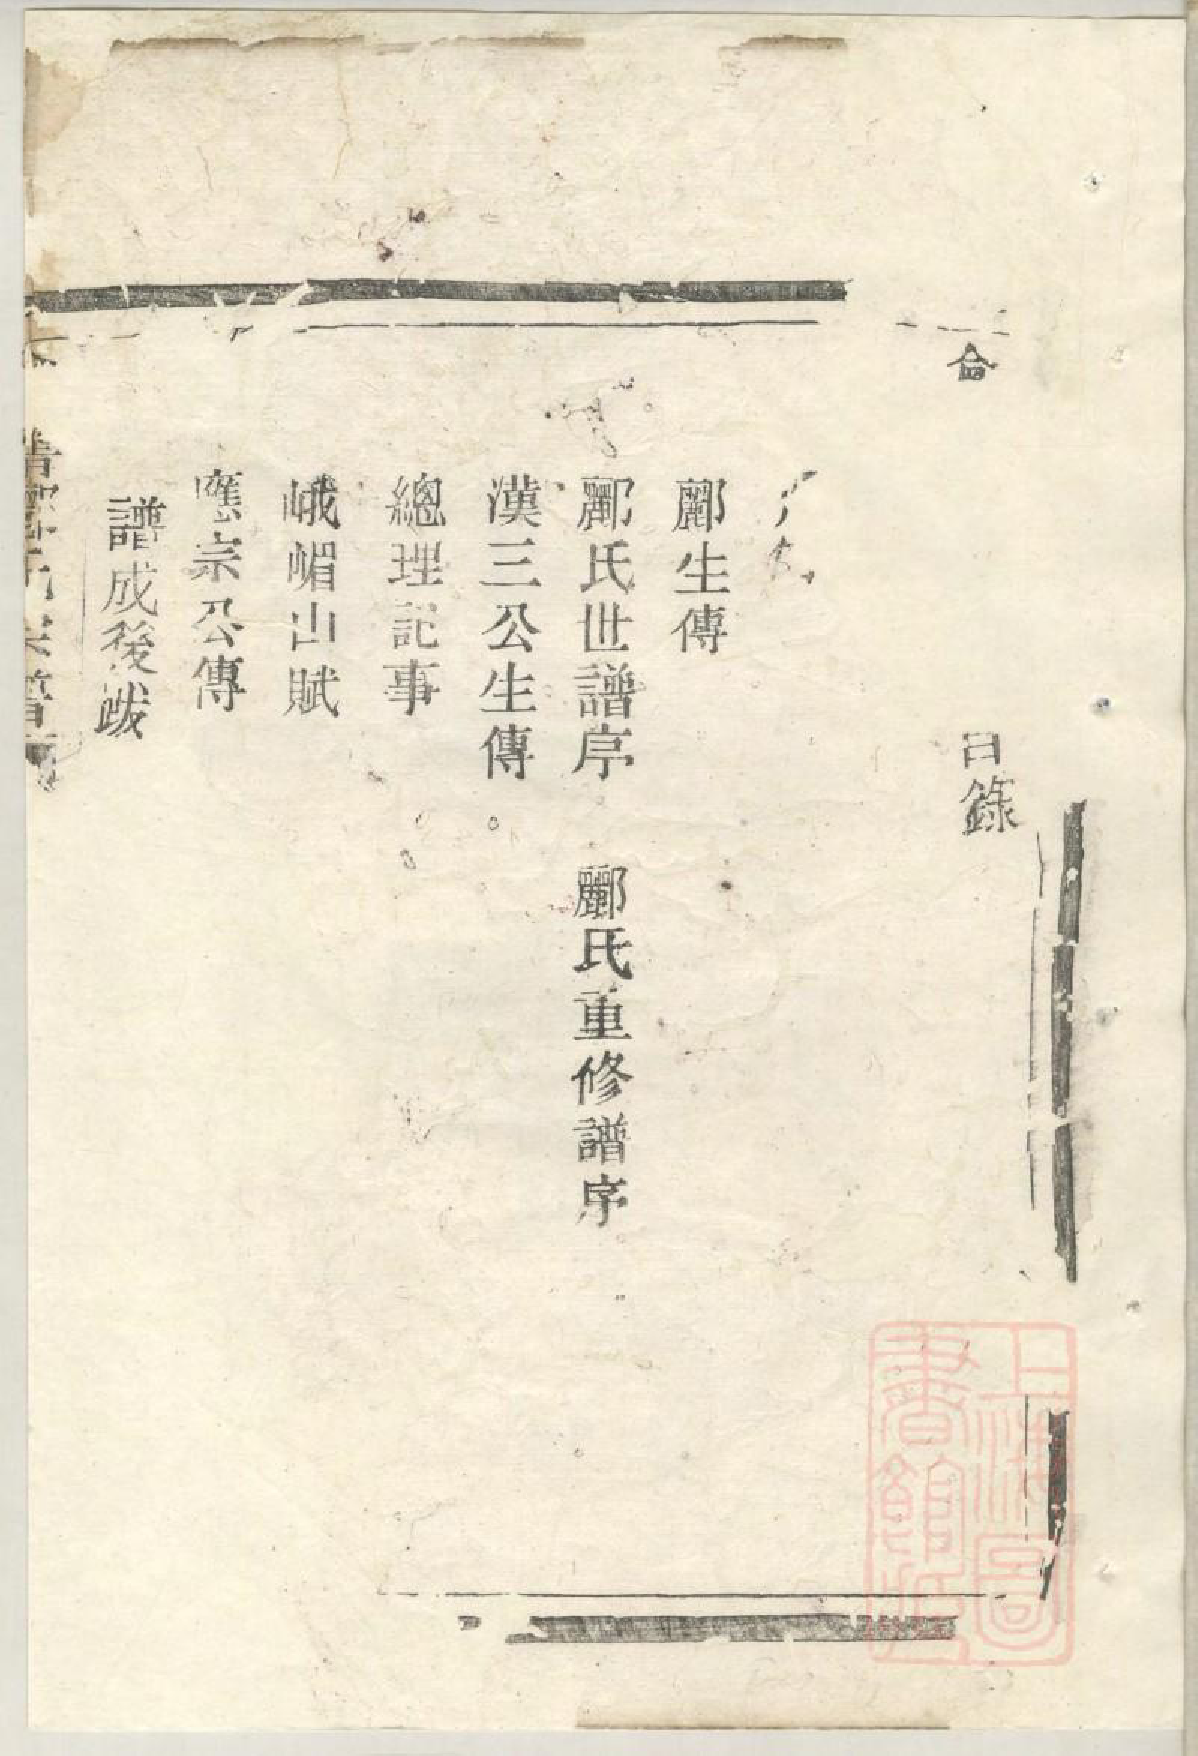 目錄
酈生傳
酈氏世譜序 酈氏重修譜序
漢三公生傳
總理記事
峨嵋山賦
應宗公傳
譜成後跋
上海圖
書館藏